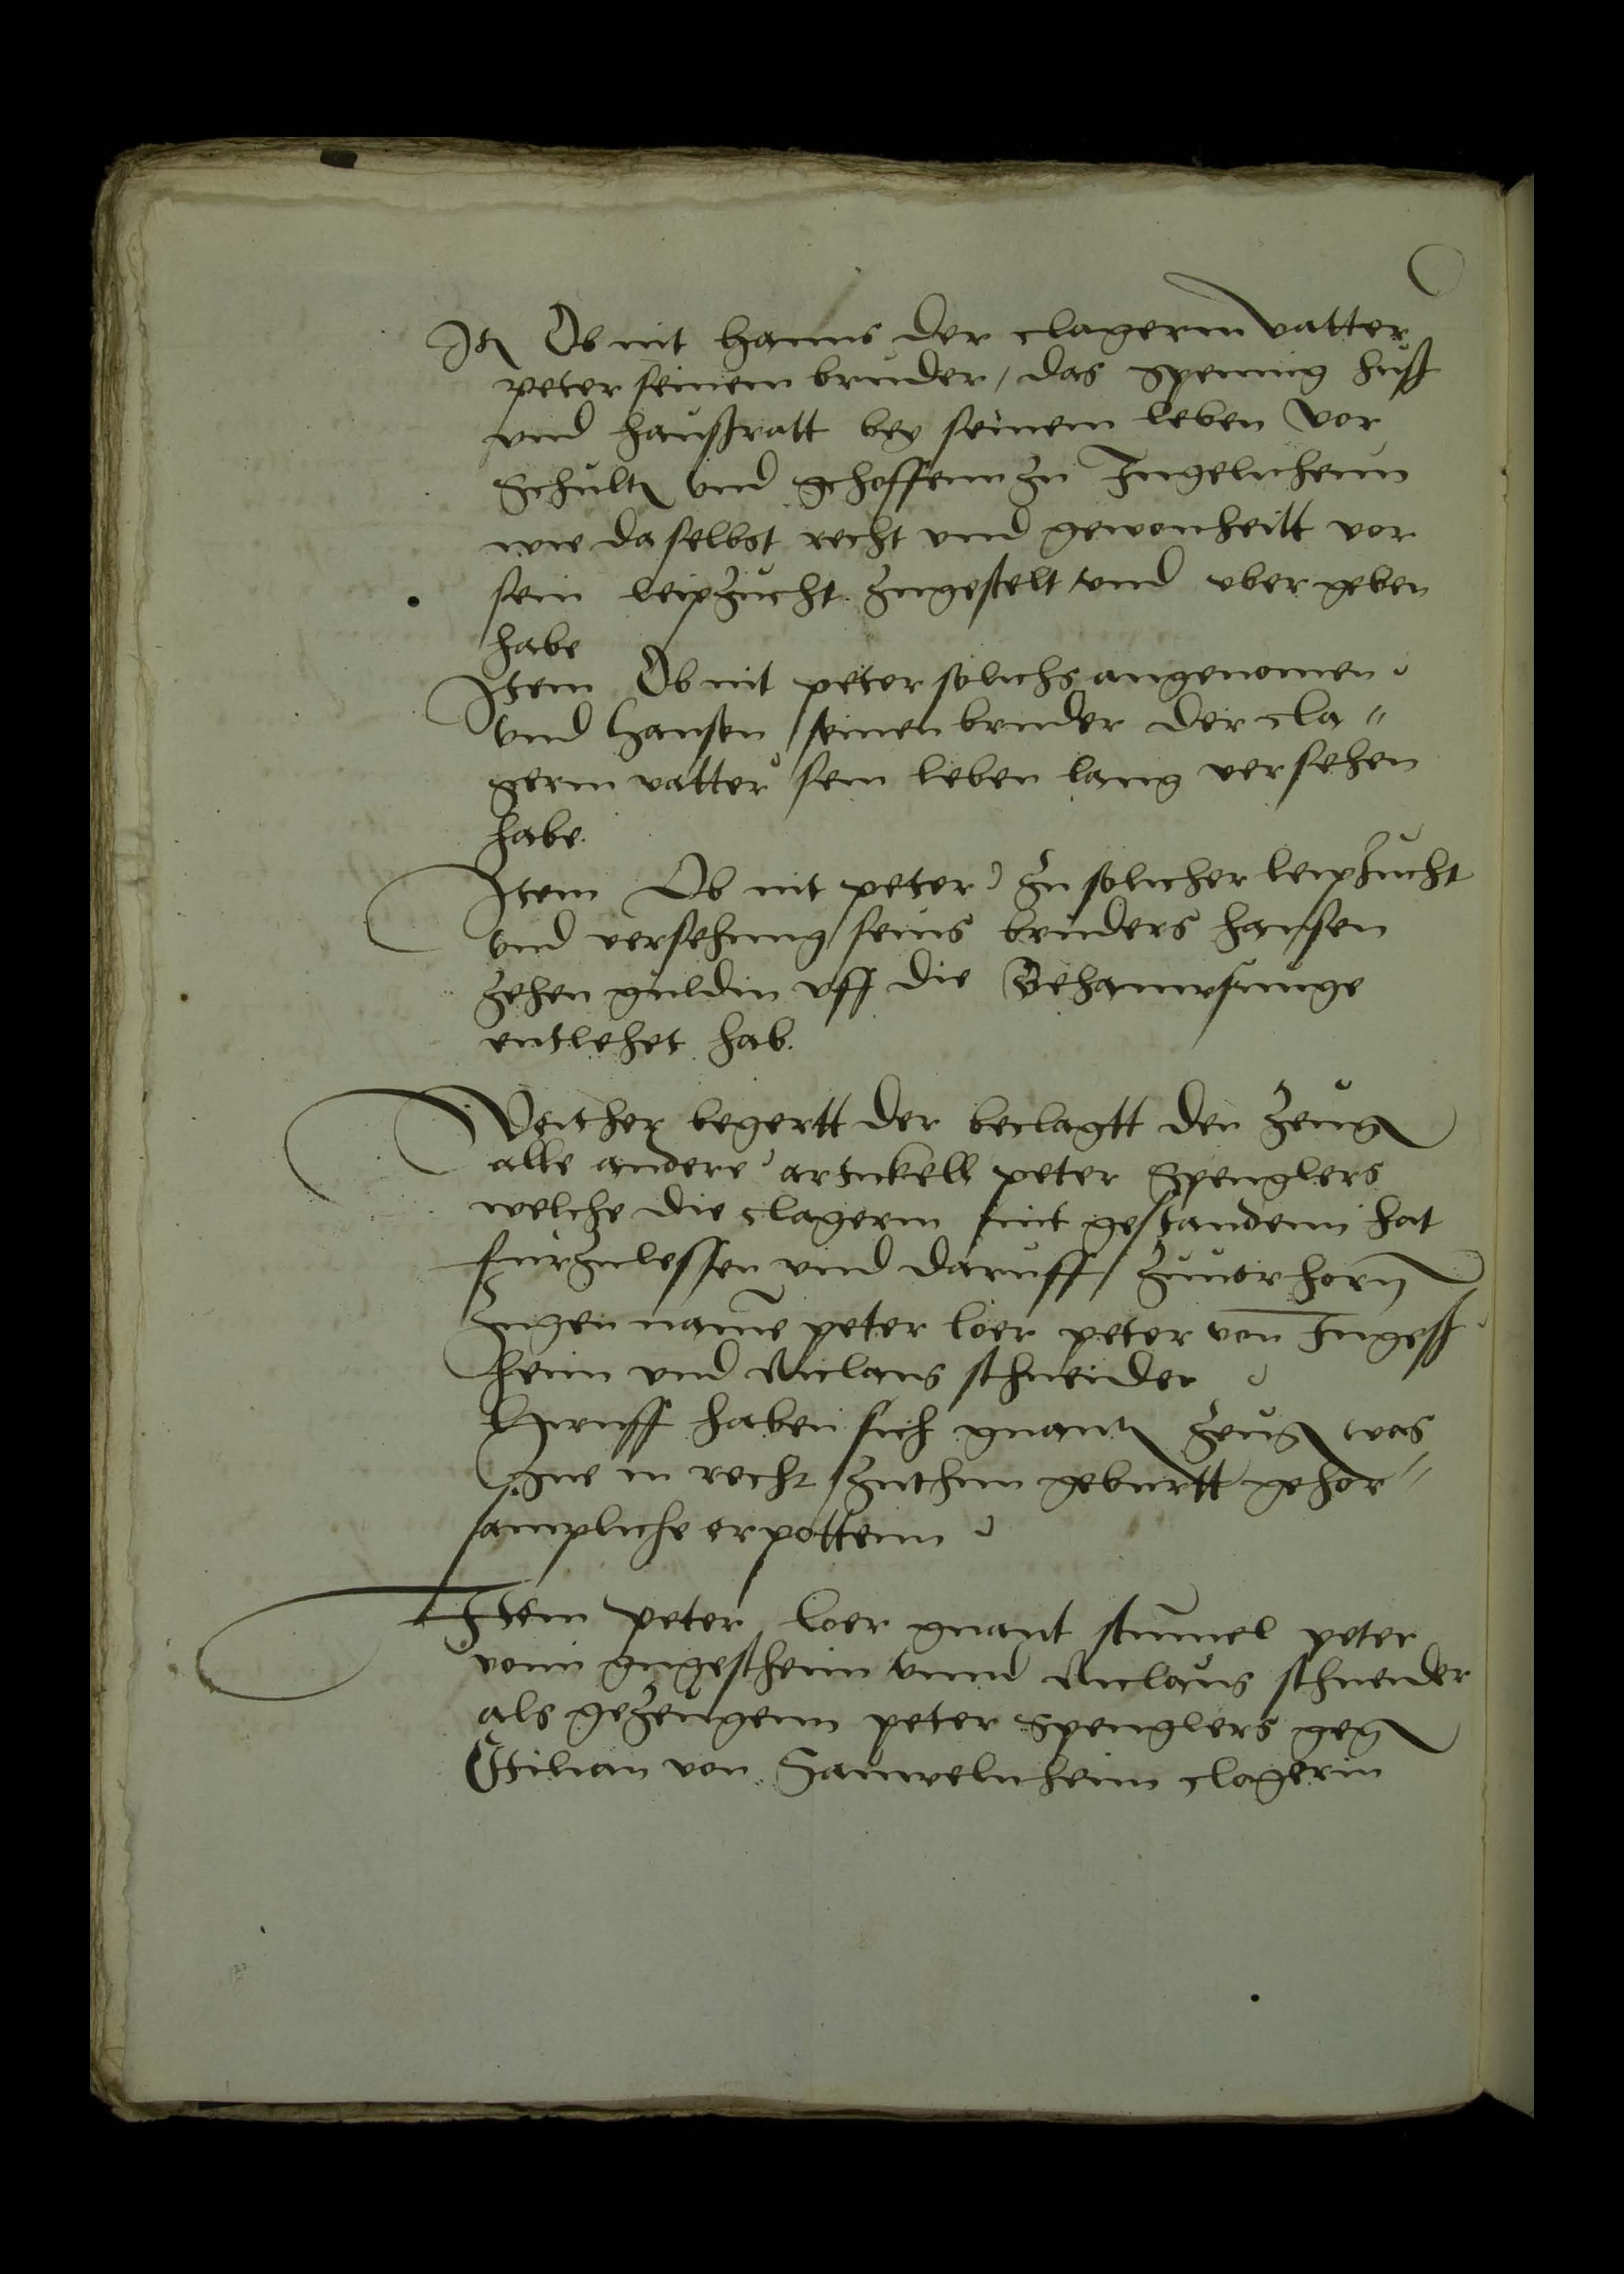 Itz Ob nit Hanns der clagerin vatter
peter seinem bruder / das Spennig huß
vnd haußratt bey seinem leben vor
Schultz vnd schoffenn zu Ingelnheim
wie daselbst recht vnd gewonheitt vor
sein leipzucht zugestelt vnd vber geben
habe
Item Ob nit peter solichs angenomen
vnd Hansen seinen bruder der cla"
gerin vatter sein leben lang versehen
habe
Item Ob nit peter zu solicher leipzucht
vnd versehung seins bruders Hansen
zehen guldin vff die Behawsunge
entlehet hab.
Weither begertt der beclagtt den zeug
alle andere artickell peter Spenglers
welche die clagerin nit gestandenn hat
furzulessen vnd daruff zuuorhorn
peter loer peter von
heim vnd Niclaus schneider
Hiruff haben sich gnant zeug was
Ine in recht zuthun geburtt gehor"
sampliche erpottenn
Item peter loer gnant stumel peter
vonn vnnd Niclaus schneider
als gezeugenn peter Spenglers geg
Otilian von Sauwelnheim clagerin